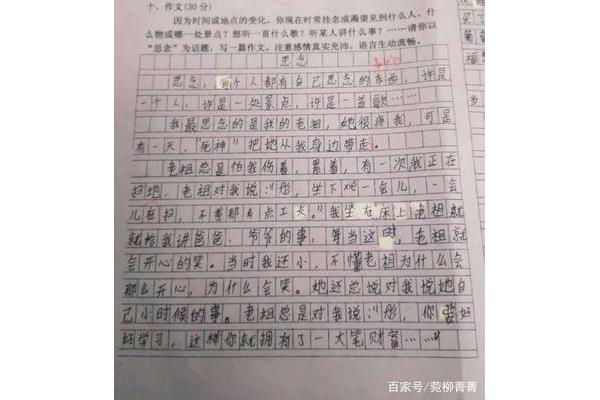 十、作文(30分)
因为时间或地点的变化,你现在时常挂念或渴望见到什么人、什
么物或哪一处景点?想听一首什么歌?听某人讲什么事?……请你以
“思念”为话题,写一篇作文。注意感情真实充沛,语言生动流畅。
思念
思念,每个人都有自己思念的东西,许是
一个人,许是一处景点,许是一首歌……
我最思念的是我的老祖,她很疼我,可是
有一天,“死神”把她从我身边带走。
老祖总是怕我伤着,累着,有一次我正在
扫地,老祖对我说:“彤,坐下 一会儿,一会
儿在扫,不差那有点工夫。”我坐在床上,老祖就
就给我讲爸爸、爷爷的事,每当这时,老祖就
会开心的笑。当时我还小,不懂老祖为什么会
那么开心,为什么会笑。她还总说对我说她自
己小时候的事。老祖总是对我说:“彤,你要好
好学习,这样你就拥有了一大笔财富……”
百家号/菀柳菁菁